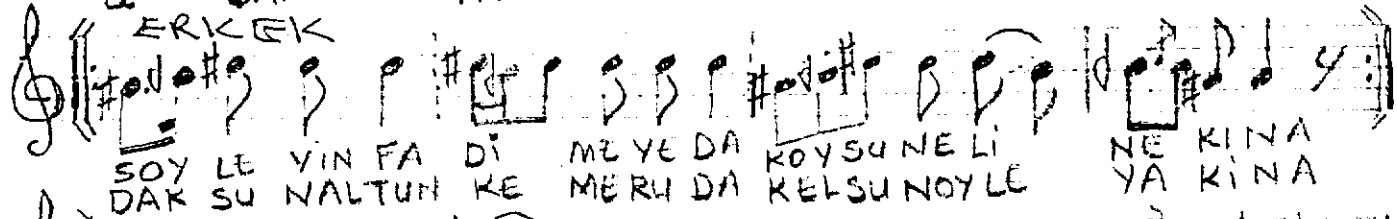 ERKEK
SOY LE YİN FA Dİ ME YE DA KOY SU NE Lİ NE KINA
DAK SU NALTUN KE MERU DA KELSU NOYLE YA KİNA